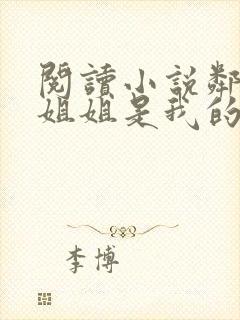 閱讀小説鄰
姐姐是我的
李博